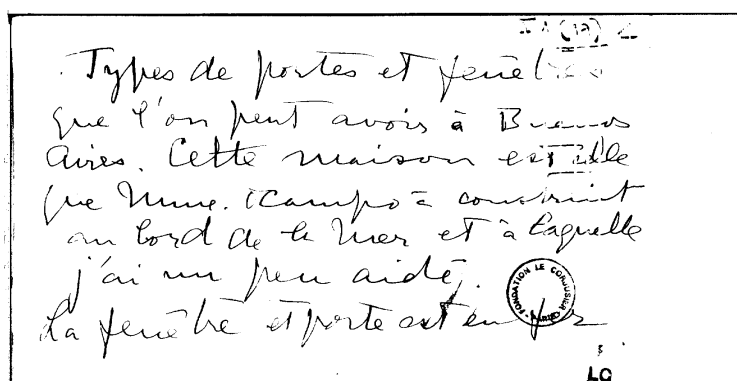 I1 (17) 2
Types de portes et fenêtres
que l'on peut avoir à Buenos
Aires. Cette maison est celle
que Mme. Ocampo à construit
au bord de la Mer et à laquelle
j'ai un peu aidé.
La fenêtre et porte est en fer
FONDATION LE CORBUSIER PARIS
LC